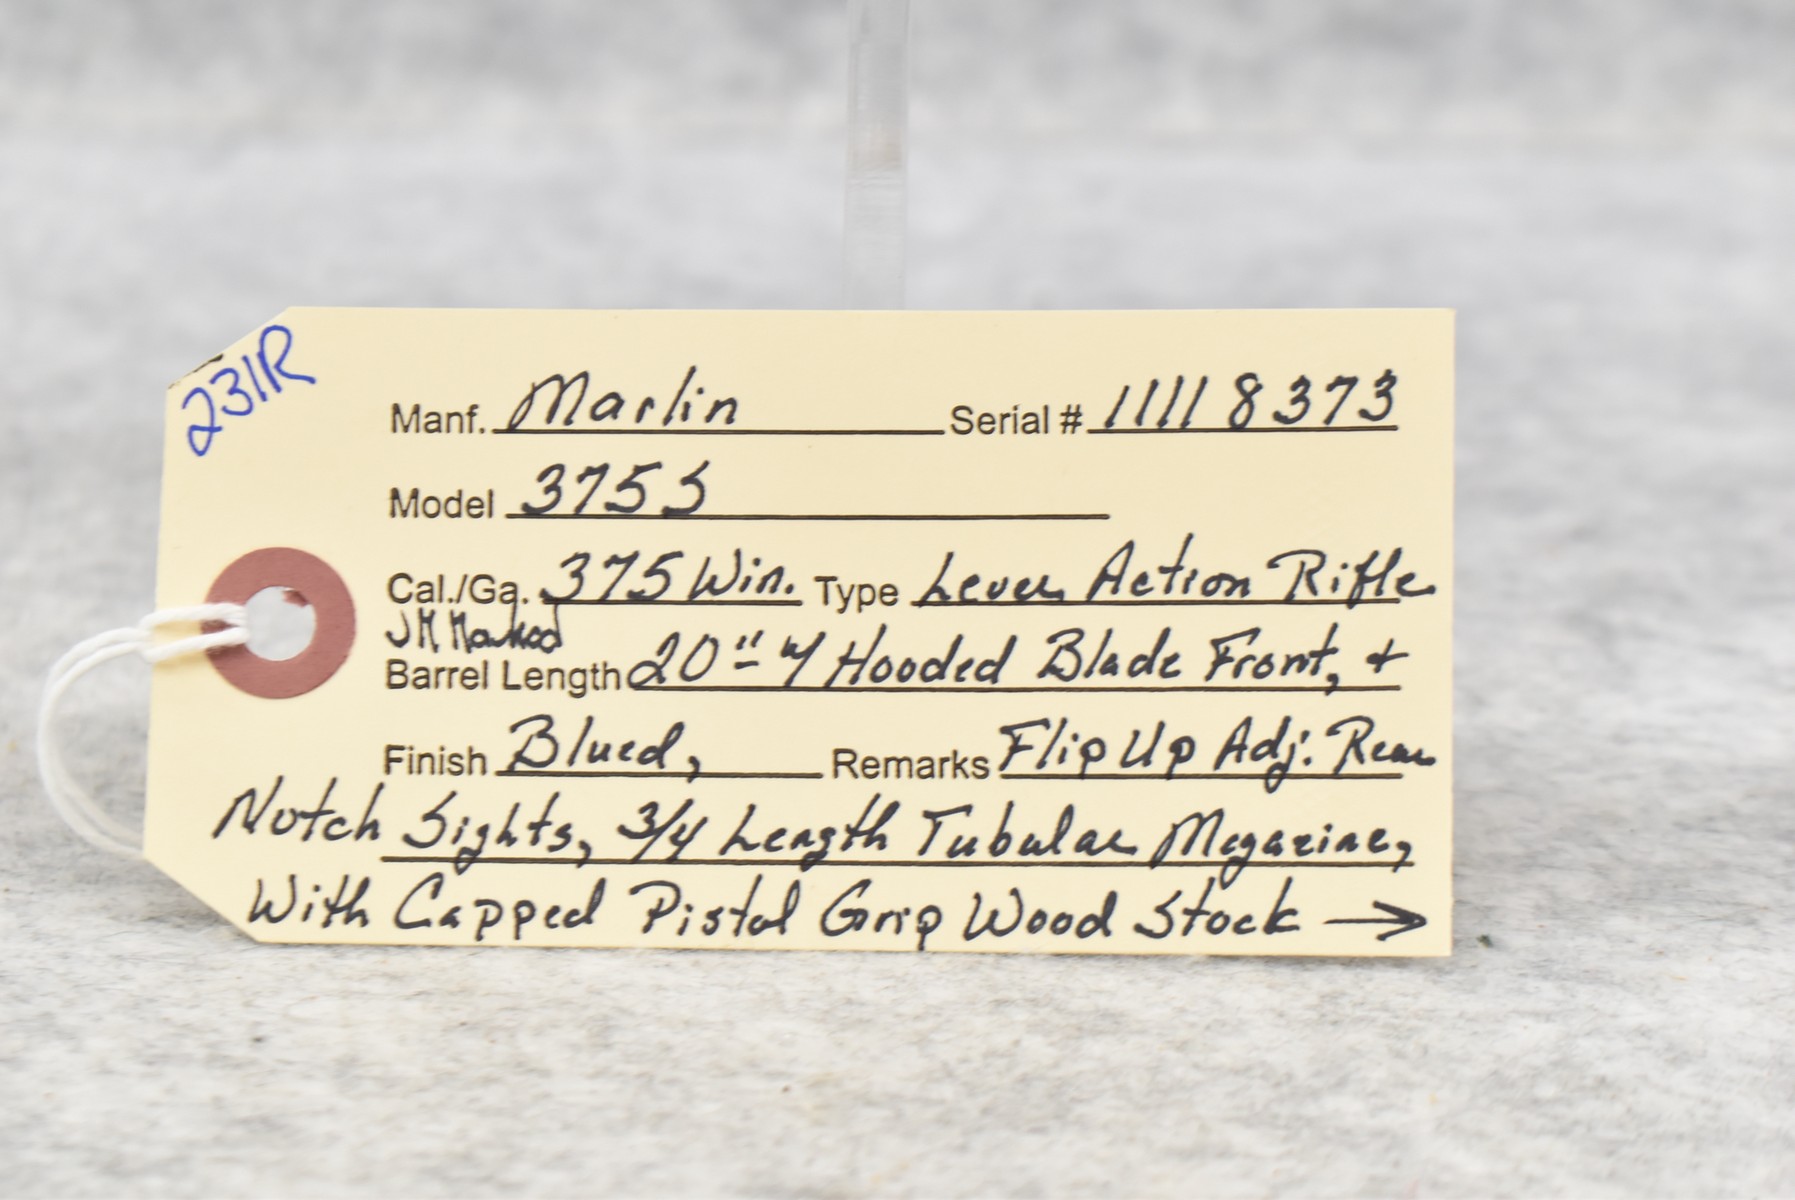 231R
Manf. Marlin Serial # 11118373
Model 375 S
Cal./Ga. 375 Win. Type Lever Action Rifle
JM Marked
Barrel Length 20" w/ Hooded Blade Front, +
Finish Blued, Remarks Flip Up Adj. Rear
Notch Sights, 3/4 Length Tubular Magazine,
With Capped Pistol Grip Wood Stock →